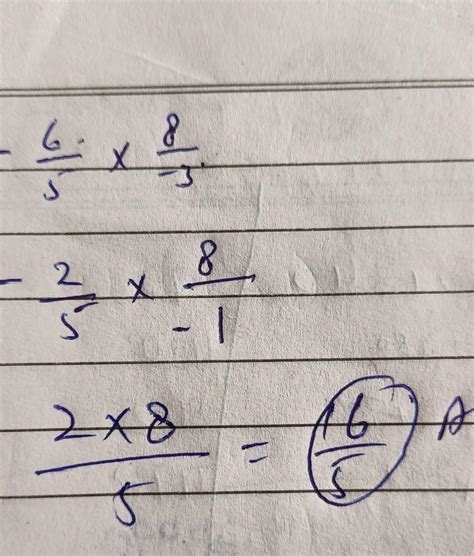 - 6/5 × 8/-3
- 2/5 × 8/-1
2×8/5 = 16/5 A